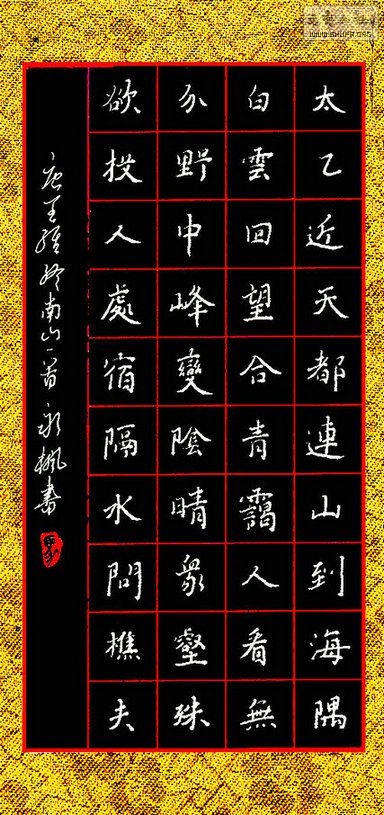 太乙近天都連山到海隅
白雲回望合青靄人看無
分野中峰變陰晴衆壑殊
欲投人處宿隔水問樵夫
唐王維終南山一首永楓書
WWW.SHUFA.ORG